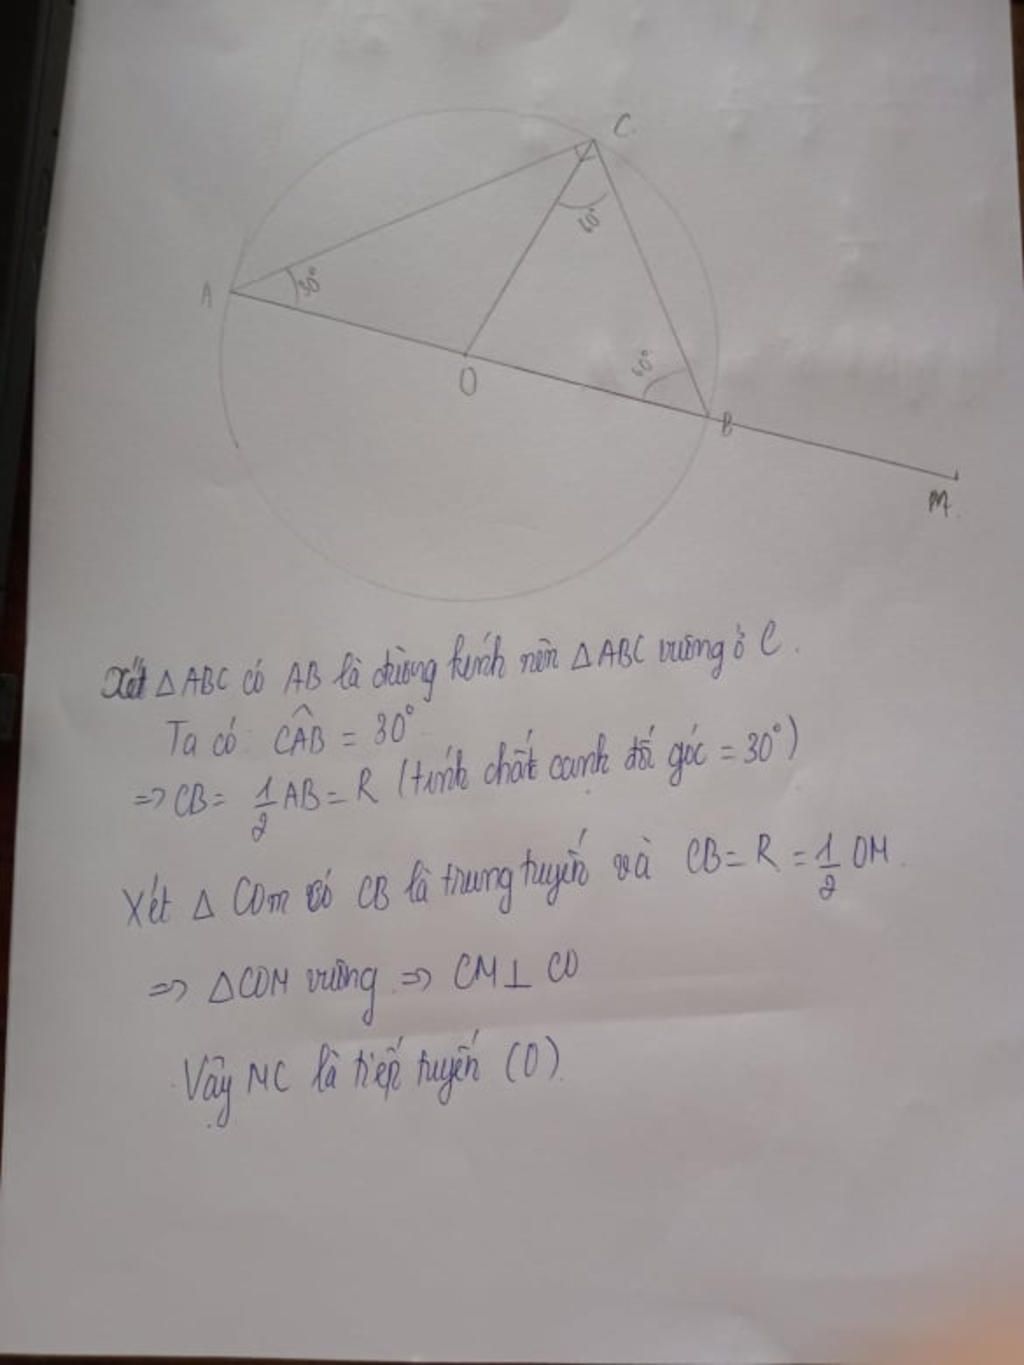 C.
60°
A
30°
60°
O
B
M.
Xét △ABC có AB là đường kính nên △ABC vuông ở C.
Ta có: \widehat{CAB} = 30°
=> CB = 1/2 AB = R (tính chất cạnh đối góc = 30°)
Xét △ COM có CB là trung tuyến và CB = R = 1/2 OM.
=> △COM vuông => CM ⊥ CO
Vậy MC là tiếp tuyến (O).